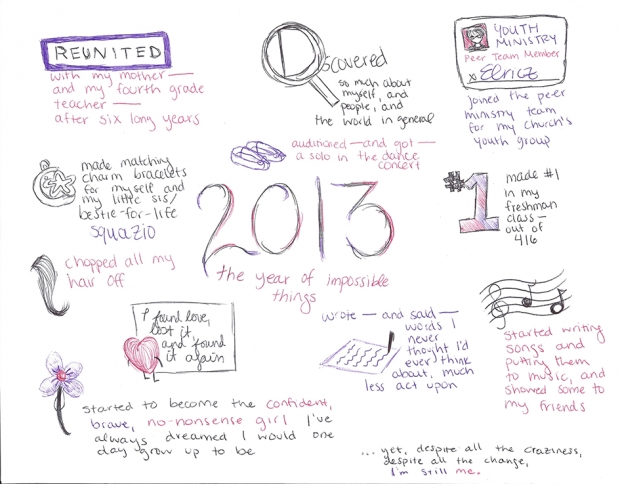 REUNITED
with my mother—
and my fourth grade
teacher—
after six long years
Discovered
so much about
myself, and
people, and
the world in general
YOUTH
MINISTRY
Peer Team Member
x Elricz
joined the peer
ministry team
for my church's
youth group
auditioned—and got—
a solo in the dance
concert
made matching
charm bracelets
for myself and
my little sis/
bestie-for-life
squazio
2013
the year of impossible
things
#1
made #1
in my
freshman
class—
out of
416
chopped all my
hair off
I found love,
lost it
and found
it again
wrote—and said—
words I
never
thought I'd
ever think
about, much
less act upon
started writing
songs and
putting them
to music, and
showed some to
my friends
started to become the confident,
brave, no-nonsense girl I've
always dreamed I would one
day grow up to be
...yet, despite all the craziness,
despite all the change,
I'm still me.